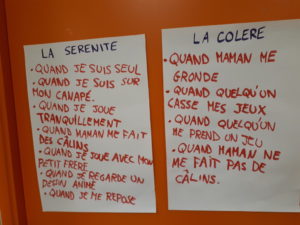 LA SERENITE
• QUAND JE SUIS SEUL
• QUAND JE SUIS SUR
MON CANAPÉ.
• QUAND JE JOUE
TRANQUILLEMENT
• QUAND MAMAN ME FAIT
DES CÂLINS
• QUAND JE JOUE AVEC MON
PETIT FRÈRE
• QUAND JE REGARDE UN
DESSIN ANIMÉ
• QUAND JE ME REPOSE
LA COLERE
• QUAND MAMAN ME
GRONDE
• QUAND QUELQU'UN
CASSE MES JEUX
• QUAND QUELQU'UN
ME PREND UN JEU
• QUAND MAMAN NE
ME FAIT PAS DE
CÂLINS.